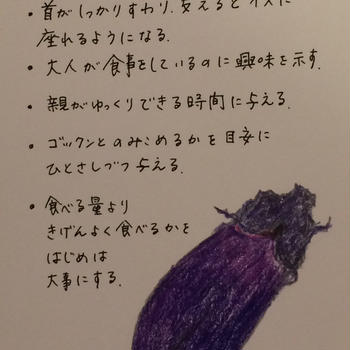 ・首がしっかりすわり、支えるとイスに
座れるようになる.
・大人が食事をしているのに興味を示す.
・親がゆっくりできる時間に与える.
・ゴックンとのみこめるかを目安に
ひとさじづつ与える.
・食べる量より
きげんよく食べるかを
はじめは
大事にする.